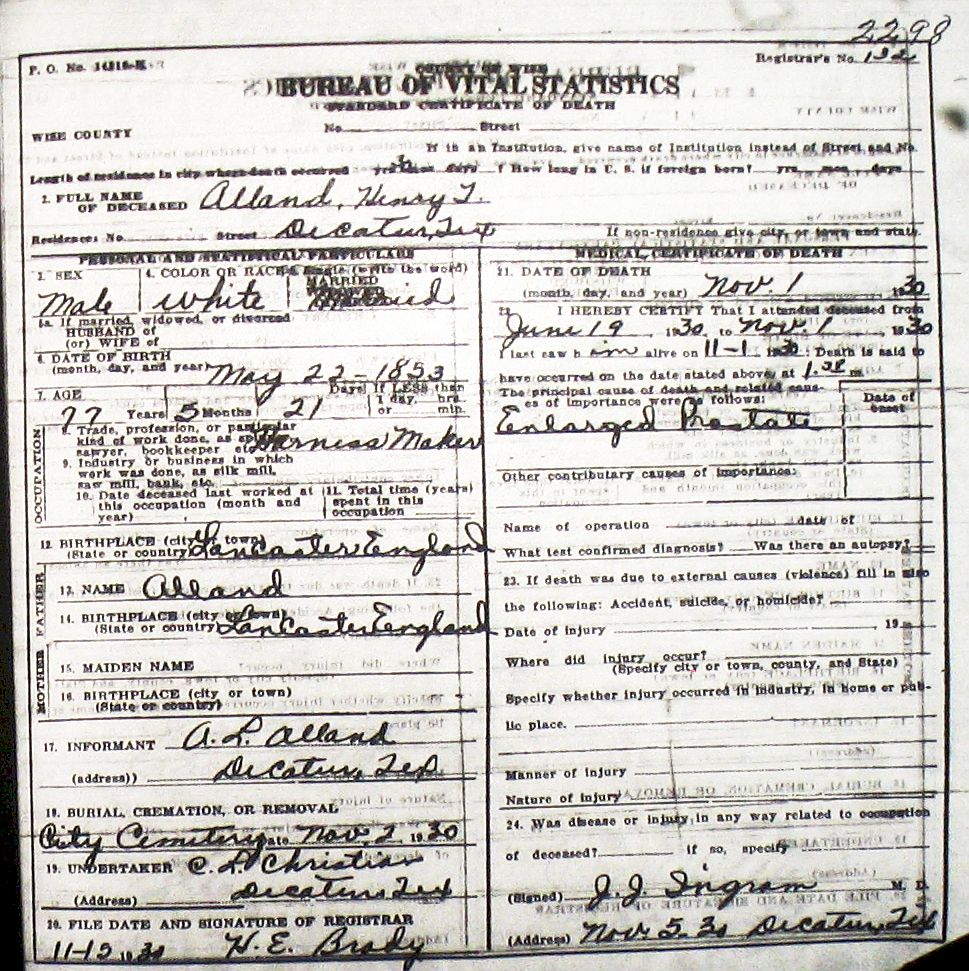 2298
P. O. No. 14316-K
Registrar's No. 132
COUNTY OF WISE
BUREAU OF VITAL STATISTICS
STANDARD CERTIFICATE OF DEATH
WISE COUNTY
No. Street
If in an Institution, give name of Institution instead of Street and No.
Length of residence in city where death occurred yrs mos days ? How long in U. S. if foreign born? yrs mos days
2. FULL NAME
OF DECEASED Alland, Henry T.
Residence: No. Street Decatur, Tex If non-residence give city, or town, and state.
PERSONAL AND STATISTICAL PARTICULARS
3. SEX 4. COLOR OR RACE Single (write the word)
MARRIED
Male White Married
5a. If married, widowed, or divorced
HUSBAND of
(or) WIFE of
6. DATE OF BIRTH
(month, day, and year) May 22 - 1853
7. AGE Days If LESS than
1 day, hrs.
77 Years 5 Months 21 or min.
OCCUPATION
8. Trade, profession, or particular
kind of work done, as
sawyer, bookkeeper etc. Harness Maker
9. Industry or business in which
work was done, as silk mill,
saw mill, bank, etc.
10. Date deceased last worked at
this occupation (month and
year)
11. Total time (years)
spent in this
occupation
12. BIRTHPLACE (city or town)
(State or country) Lancaster England
FATHER
13. NAME Alland
14. BIRTHPLACE (city or town)
(State or country) Lancaster England
MOTHER
15. MAIDEN NAME
16. BIRTHPLACE (city or town)
(State or country)
17. INFORMANT A. L. Alland
(address)) Decatur, Tex
18. BURIAL, CREMATION, OR REMOVAL
City Cemetery Date Nov. 2 1930
19. UNDERTAKER C. L. Christian
(Address) Decatur, Tex
20. FILE DATE AND SIGNATURE OF REGISTRAR
11-12 1930 H. E. Brady
MEDICAL CERTIFICATE OF DEATH
21. DATE OF DEATH
(month, day, and year) Nov. 1 1930
22. I HEREBY CERTIFY That I attended deceased from
June 19 1930, to Nov. 1, 1930
I last saw him alive on 11-1 1930: Death is said to
have occurred on the date stated above, at m.
The principal cause of death and related caus-
es of importance were as follows:
Date of
onset
Enlarged Prostate
Other contributary causes of importance:
Name of operation date of
What test confirmed diagnosis? Was there an autopsy?
23. If death was due to external causes (violence) fill in also
the following: Accident, suicide, or homicide?
Date of injury 19
Where did injury occur?
(Specify city or town, county, and State)
Specify whether injury occurred in industry, in home or pub-
lic place.
Manner of injury
Nature of injury
24. Was disease or injury in any way related to occupation
of deceased? If so, specify
(Signed) J. J. Ingram M. D.
(Address) Nov. 5 30 Decatur, Tex